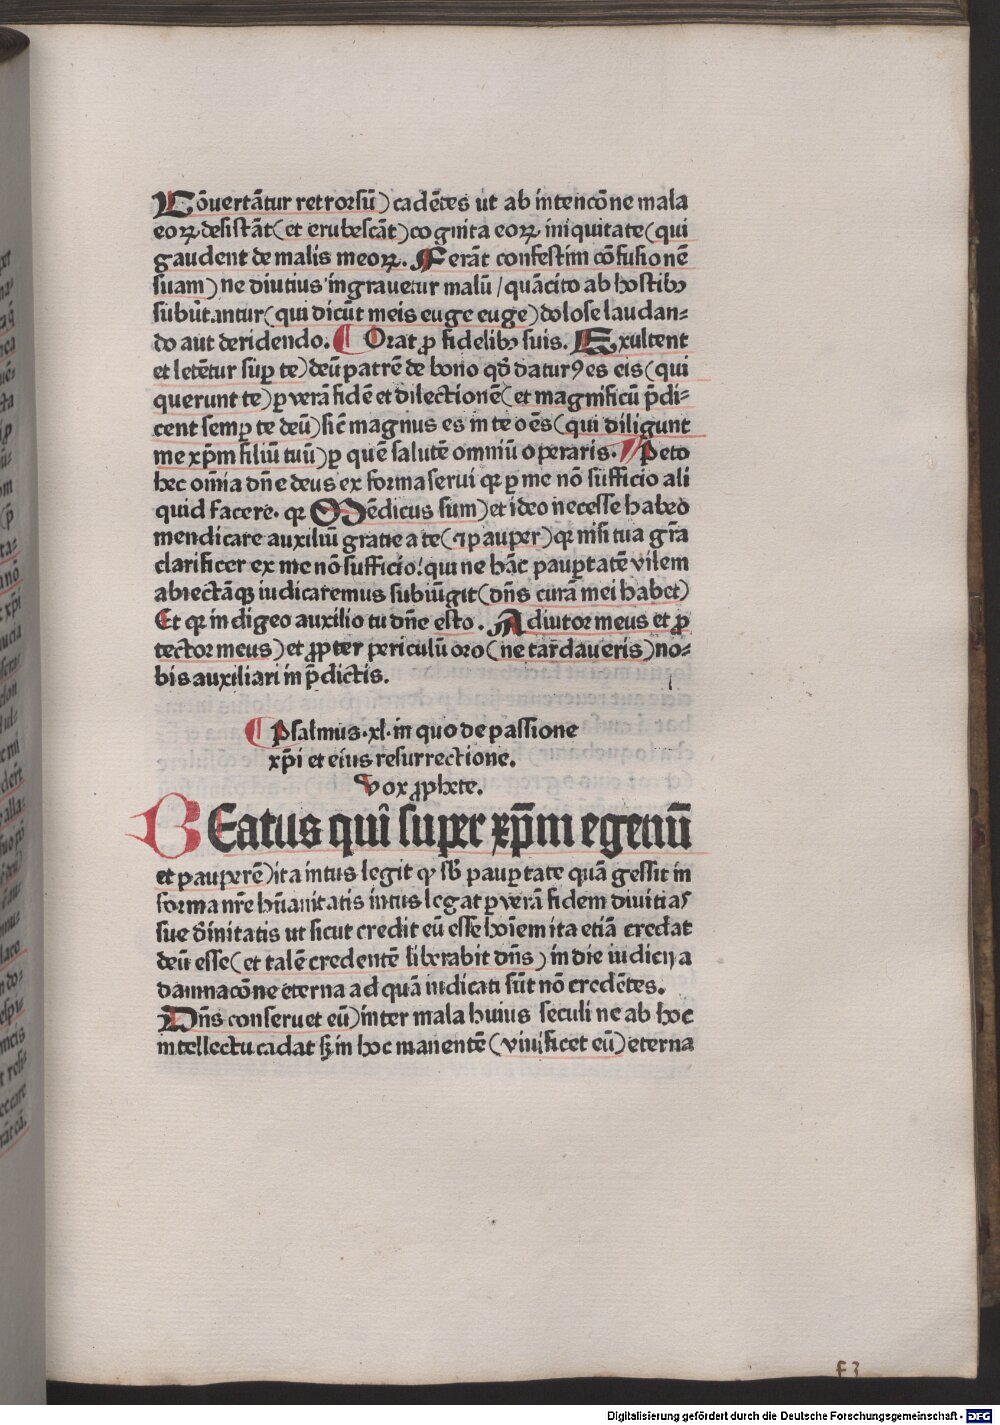 Cōuertātur retrorsū) cadētes ut ab intencōne mala
eoꝝ desistāt (et erubescāt) cognita eoꝝ iniquitate (qui
gaudent de malis meoꝝ. Ferāt confestim cōfusionē
suam) ne diutius ingrauetur malū / quācito ab hostibꝰ
subūtantur (qui dicūt meis euge euge) dolose laudan-
do aut deridendo. ¶ Orat ꝓ fidelibꝰ suis. Exultent
et letētur suꝑ te) deū patrē de bono qđ daturꝰ es eis (qui
querunt te) ꝑ verā fidē et dilectionē (et magnificū p̄di-
cent semꝑ te deū) sič magnus es in te oēs (qui diligunt
me xp̄m filiū tuū) ꝑ quē salutē omniū operaris. ¶ Peto
hec om̄ia dn̄e deus ex forma serui qꝛ ꝑ me nō sufficio ali
quid facere. qꝛ Mēdicus sum) et ideo necesse habeo
mendicare auxiliū gratie a te (⁊ pauper) qꝛ nisi tua gr̄a
clarificer ex me nō sufficio. qui ne hāc pauꝑtatē vilem
abiectāqꝫ iudicaremus subiūgit (dn̄s curā mei habet)
Et qꝛ indigeo auxilio tu dn̄e esto. Adiutor meus et ꝓ
tector meus) et ꝓpter periculū oro (ne tardaueris) no-
bis auxiliari in p̄dictis.
¶ Psalmus .xl. in quo de passione
xp̄i et eius resurrectione.
Vox ꝓphete.
BEatus qui super xp̄m egenū
et pauperē) ita intus legit ꝙ sb̄ pauꝑtate quā gessit in
forma nr̄e hūanitatis intus legat ꝑ verā fidem diuitias
sue diūitatis ut sicut credit eū esse hoīem ita etiā credat
deū esse (et talē credentē liberabit dn̄s) in die iudicij a
damnacōne eterna ad quā iudicati sūt nō credētes.
Dn̄s conseruet eū) inter mala huius seculi ne ab hoc
intellectu cadat sꝫ in hoc manentē (viuificet eū) eterna
f 3
Digitalisierung gefördert durch die Deutsche Forschungsgemeinschaft - DFG